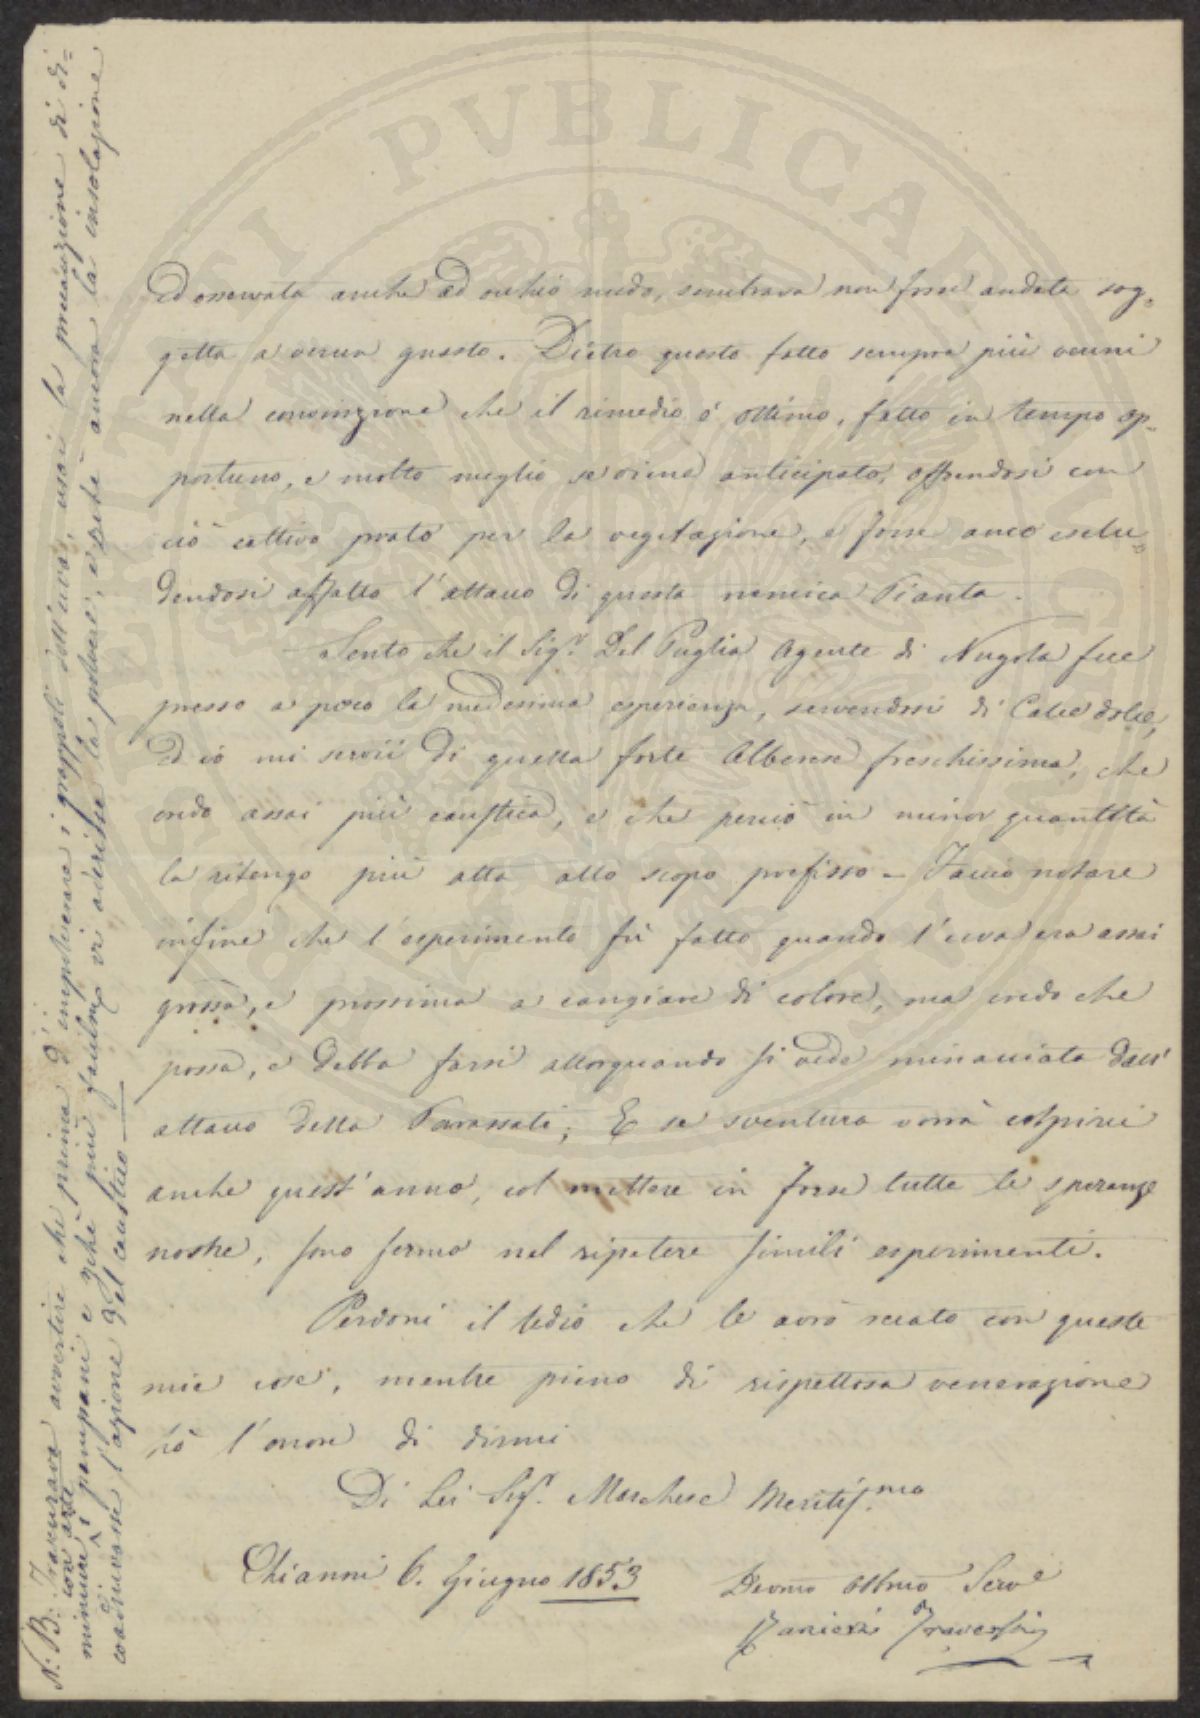 ed osservata anche ad occhio nudo, sembrava non fosse andata sog-
getta a verun guasto. Dietro questo fatto sempre più venni
nella convinzione che il rimedio è ottimo, fatto in tempo op-
portuno, e molto meglio se viene anticipato, offrendosi con
ciò cattivo prato per la vegetazione, e forse anco esclu=
dendosi affatto l'attacco di questa nemica Pianta.
Sento che il Sigr. Del Puglia Agente di Nugola fece
presso a poco la medesima esperienza, servendosi di Calce dolce,
ed io mi servii di quella forte Alberese freschissima, che
credo assai più caustica, e che perciò in minor quantità
la ritengo più atta allo scopo prefisso - Faccio notare
infine che l'esperimento fù fatto quando l'uva era assai
grossa, e prossima a cangiare di colore, ma credo che
possa, e debba farsi allorquando si vede minacciata dall'
attacco della Parassati; E se sventura vorrà colpirci
anche quest'anno, col mettere in forse tutte le speranze
nostre, sono fermo nel ripetere simili esperimenti.
Perdoni il tedio che le avrò recato con queste
mie cose, mentre pieno di rispettosa venerazione
hò l'onore di dirmi
Di Lei Sigr. Marchese Meritismo
Chianni 6. Giugno 1853
Devmo Obbmo Serve
Ranieri Traversi
N. B. Trascurava avvertire che prima d'impolverare i grappoli dell'uva, usai la precauzione di di=
con arte
minuire i pampani e perchè più facilmte vi aderisse la polvere, e perchè ancora la insolazione
coadiuvasse l'azione del caustico
PVBLICAE